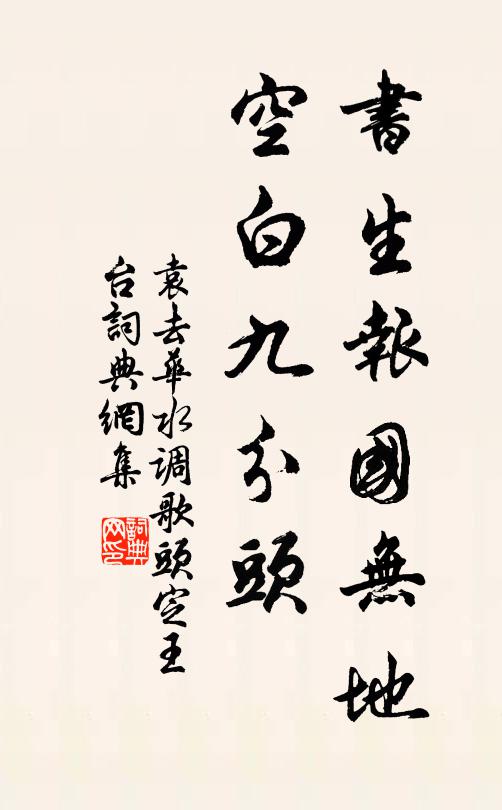 書生報國無地
空白九分頭
袁去華水调歌頭定王
台詞典網集
詞典网印